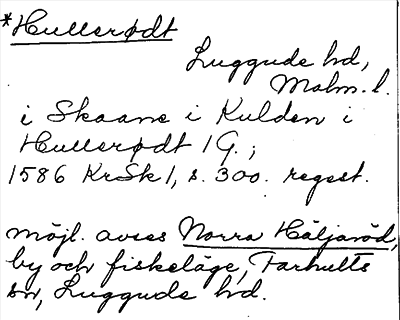 *Hullerødt
Luggude hd,
Malm. l.
i Skaane i Kulden i
Hullerødt 1 G.;
1586 KrSk 1, s. 300. regest.
möjl. avses Norra Häljaröd,
by och fiskeläge, Farhults
sn, Luggude hd.